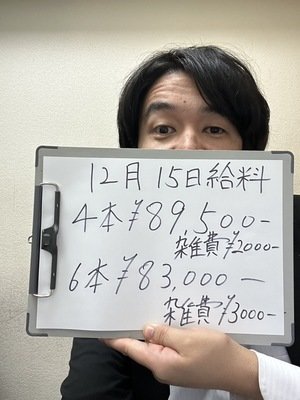 12月15日給料
4本¥89,500-
雑費¥2000-
6本¥83,000-
雑費¥3000-